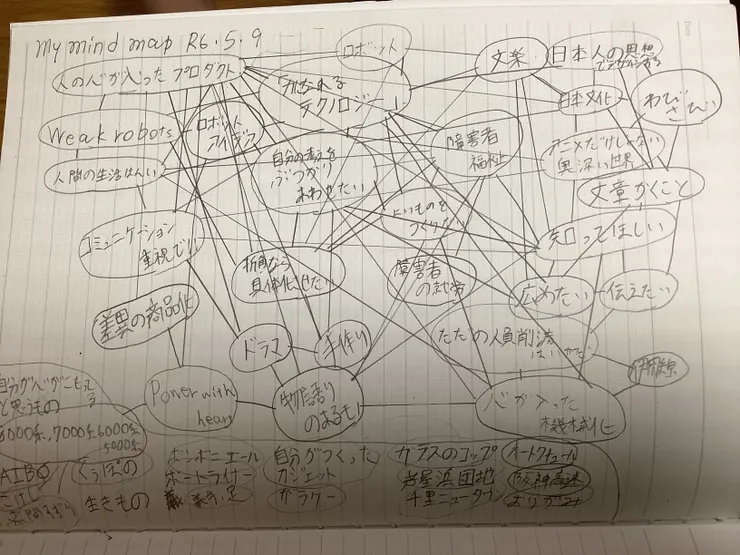 my mind map R6.5.9
ロボット
文楽
日本人の思想
人の心が入ったプロダクト
テクノロジー
日本文化
わび
さび
Weak robots
ロボット
障害者
福祉
アニメだけじゃない
奥深い世界
人間の生活はんい
自分の考えを
ぶつかり
あわせたい
文章かくこと
コミュニケーション
重視でい
よいものを
つくりたい
知ってほしい
折角なら
具体化させたい
障害者
の社労
広めたい
伝えたい
差異の商品化
ドラマ
手作り
ただの人員削減
伊雑原
自分が心がこもってる
と思うもの
Power with
heart
物語り
のあるもの
心が入った
機械化
6000系,7000系6000系
5000系
ボンボニエール
自分がつくった
ガラスのコップ
オートクチュール
AIBO
くうぼの
ポートライナー
ガジェット
岩屋浜団地
阪神高速
こけし
生きもの
ガラケー
千里ニュータウン
おりがみ